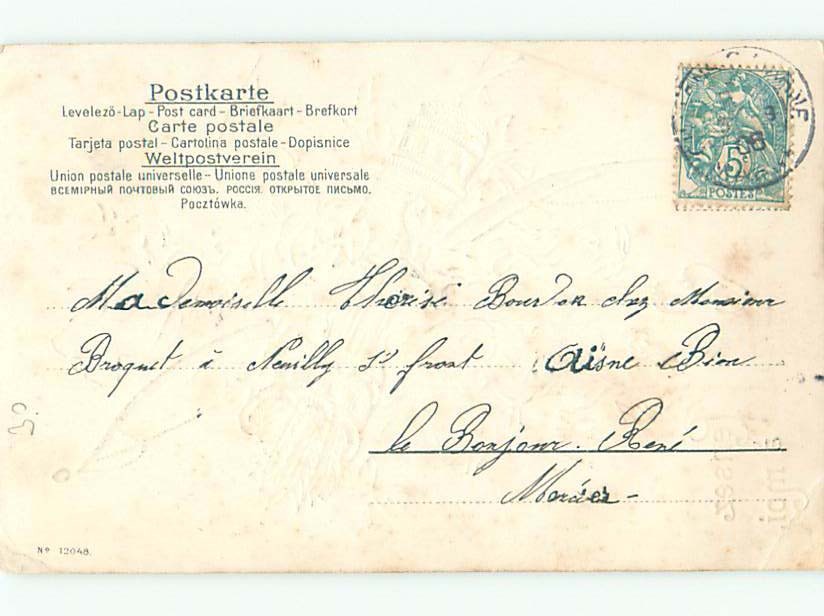 Postkarte
Levelező-Lap - Post card - Briefkaart - Brefkort
Carte postale
Tarjeta postal - Cartolina postale - Dopisnice
Weltpostverein
Union postale universelle - Unione postale universale
ВСЕМІРНЫЙ ПОЧТОВЫЙ СОЮЗЪ. РОССІЯ. ОТКРЫТОЕ ПИСЬМО.
Pocztówka.
5c
POSTES
08
Mademoiselle Thérèse Bourdon chez Monsieur
Broquet à Neuilly St front Aisne Bien
le Bonjour. René
Mercier -
30
No 12048.